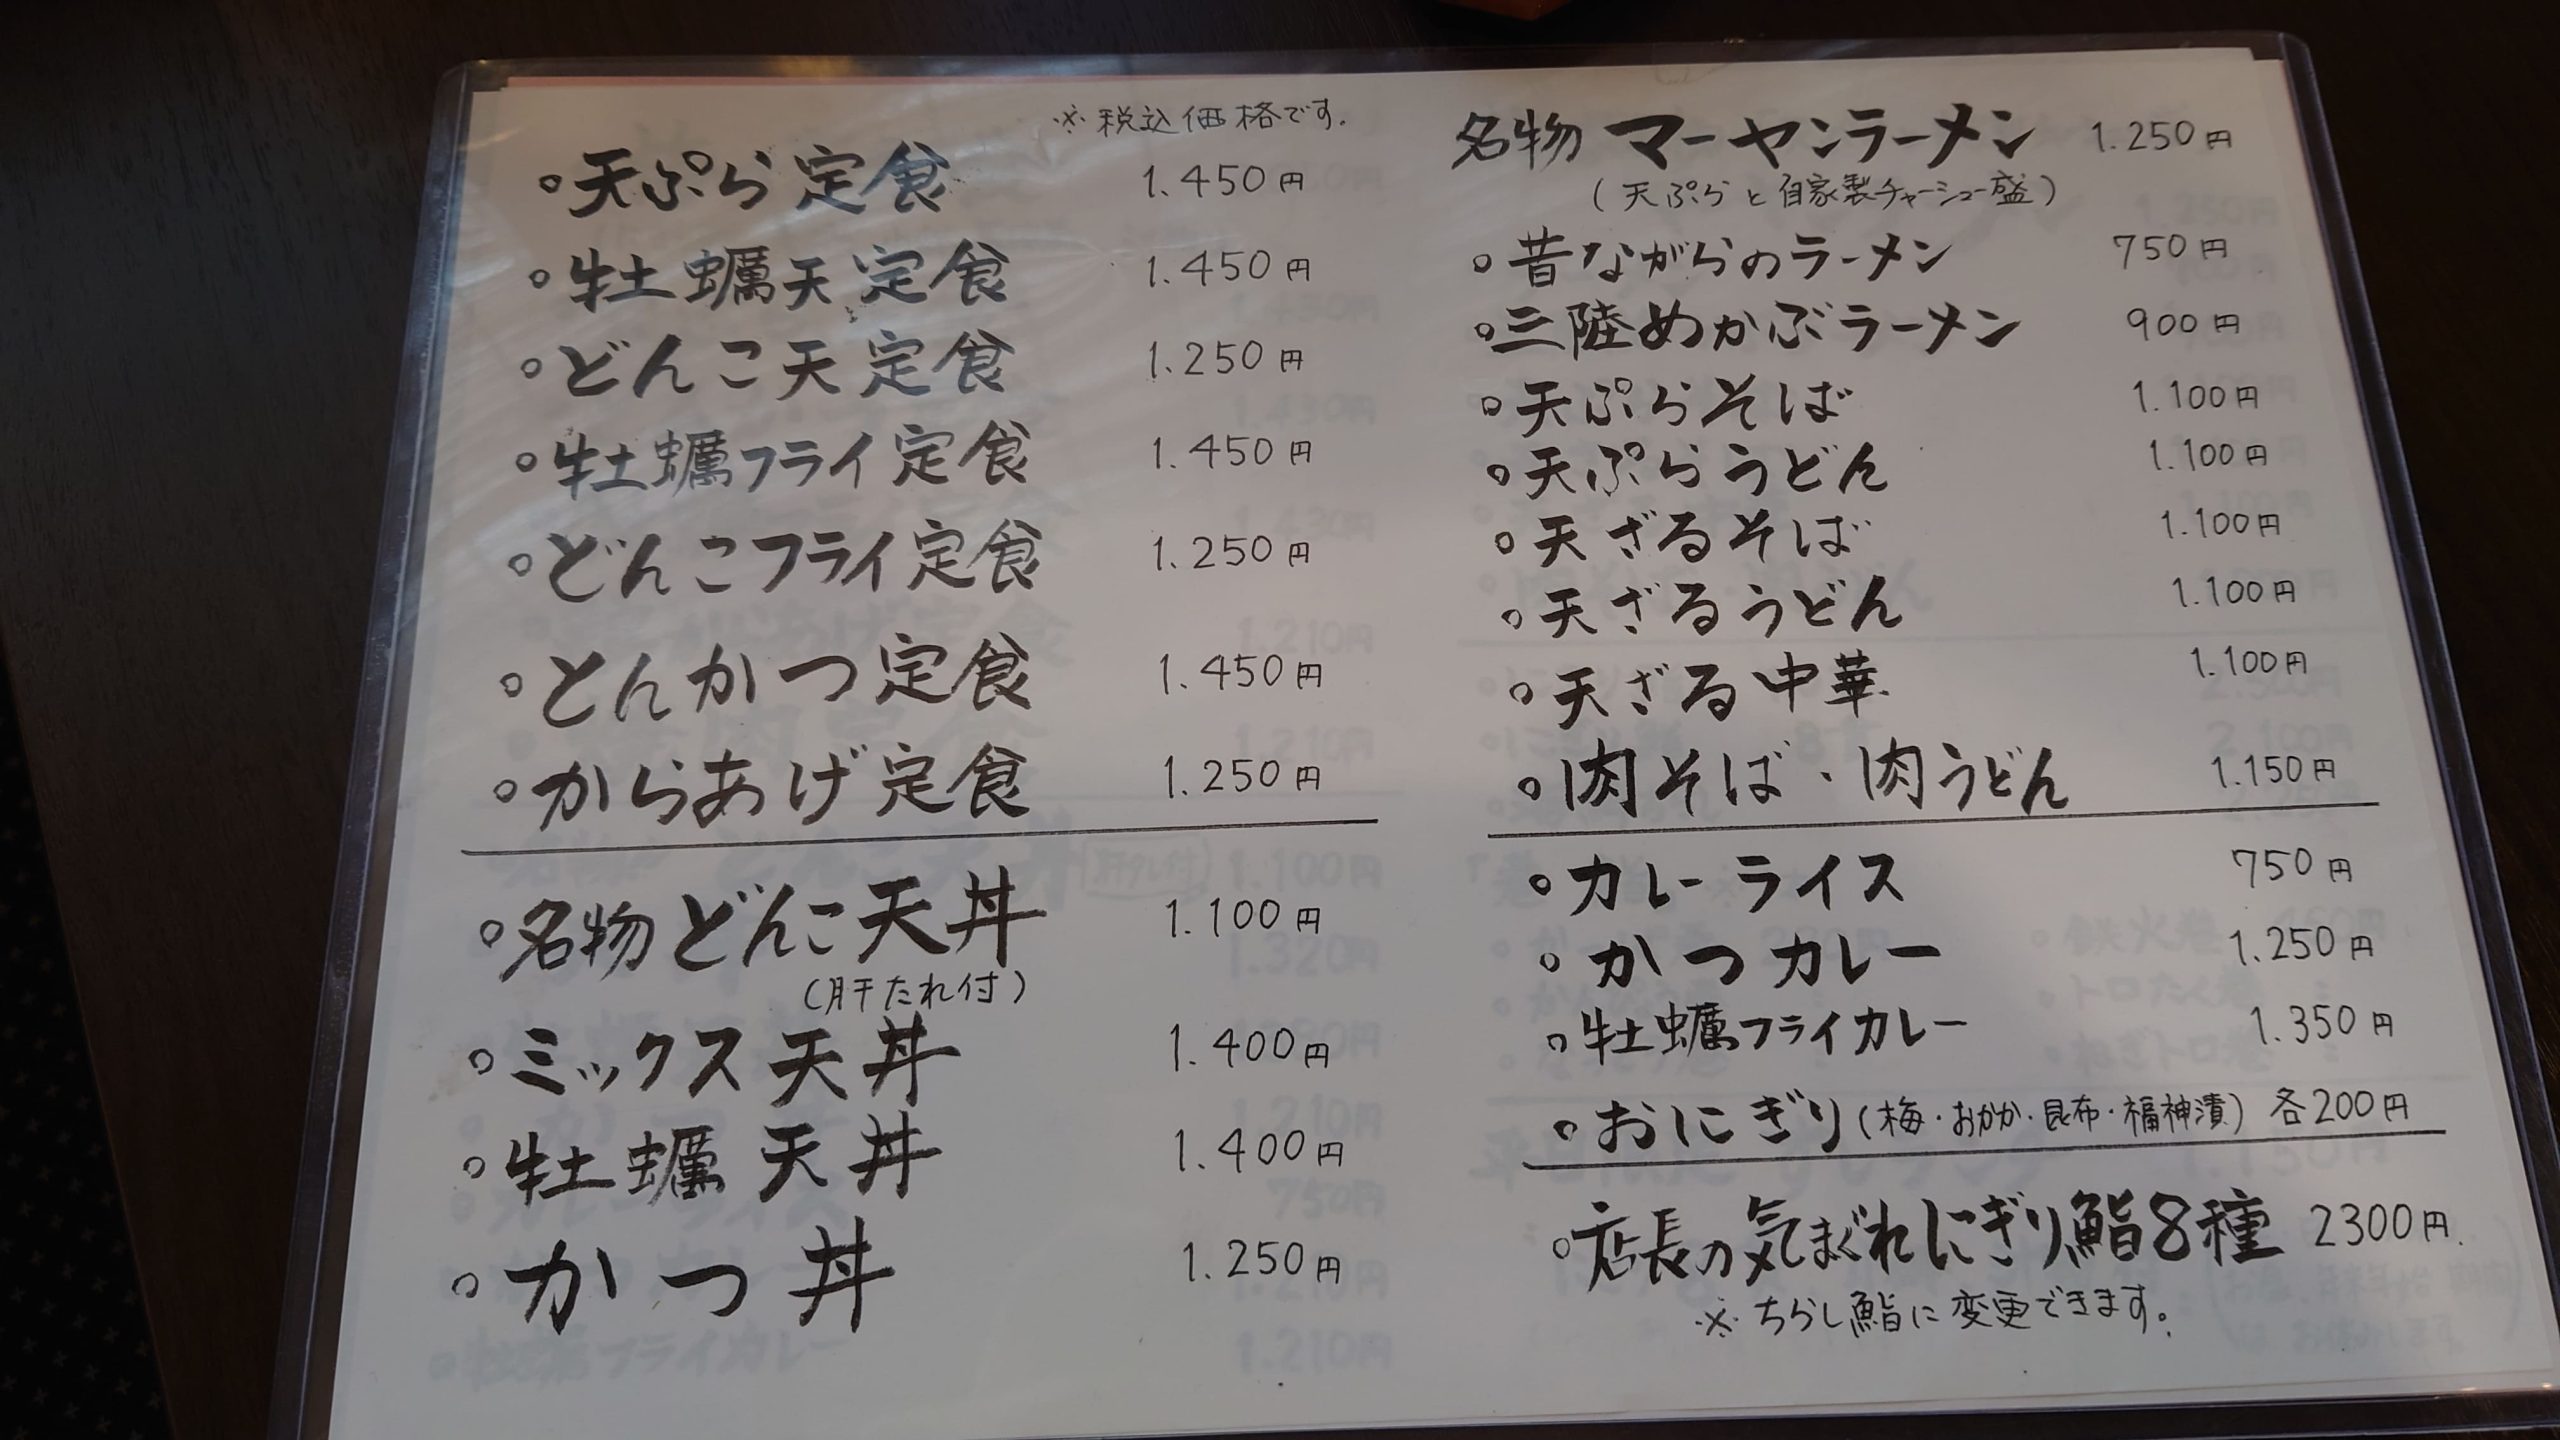 ※税込価格です.
○天ぷら定食 1.450円
○牡蠣天定食 1.450円
○どんこ天定食 1.250円
○牡蠣フライ定食 1.450円
○どんこフライ定食 1.250円
○とんかつ定食 1.450円
○からあげ定食 1.250円
○名物どんこ天丼 1.100円
(肝たれ付)
○ミックス天丼 1.400円
○牡蠣天丼 1.400円
○かつ丼 1.250円
名物 マーヤンラーメン 1.250円
(天ぷらと自家製チャーシュー盛)
○昔ながらのラーメン 750円
○三陸めかぶラーメン 900円
○天ぷらそば 1.100円
○天ぷらうどん 1.100円
○天ざるそば 1.100円
○天ざるうどん 1.100円
○天ざる中華 1.100円
○肉そば・肉うどん 1.150円
○カレーライス 750円
○かつカレー 1.250円
○牡蠣フライカレー 1.350円
○おにぎり(梅・おかか・昆布・福神漬) 各200円
○店長の気まぐれにぎり鮨8種 2300円.
※ちらし鮨に変更できます。